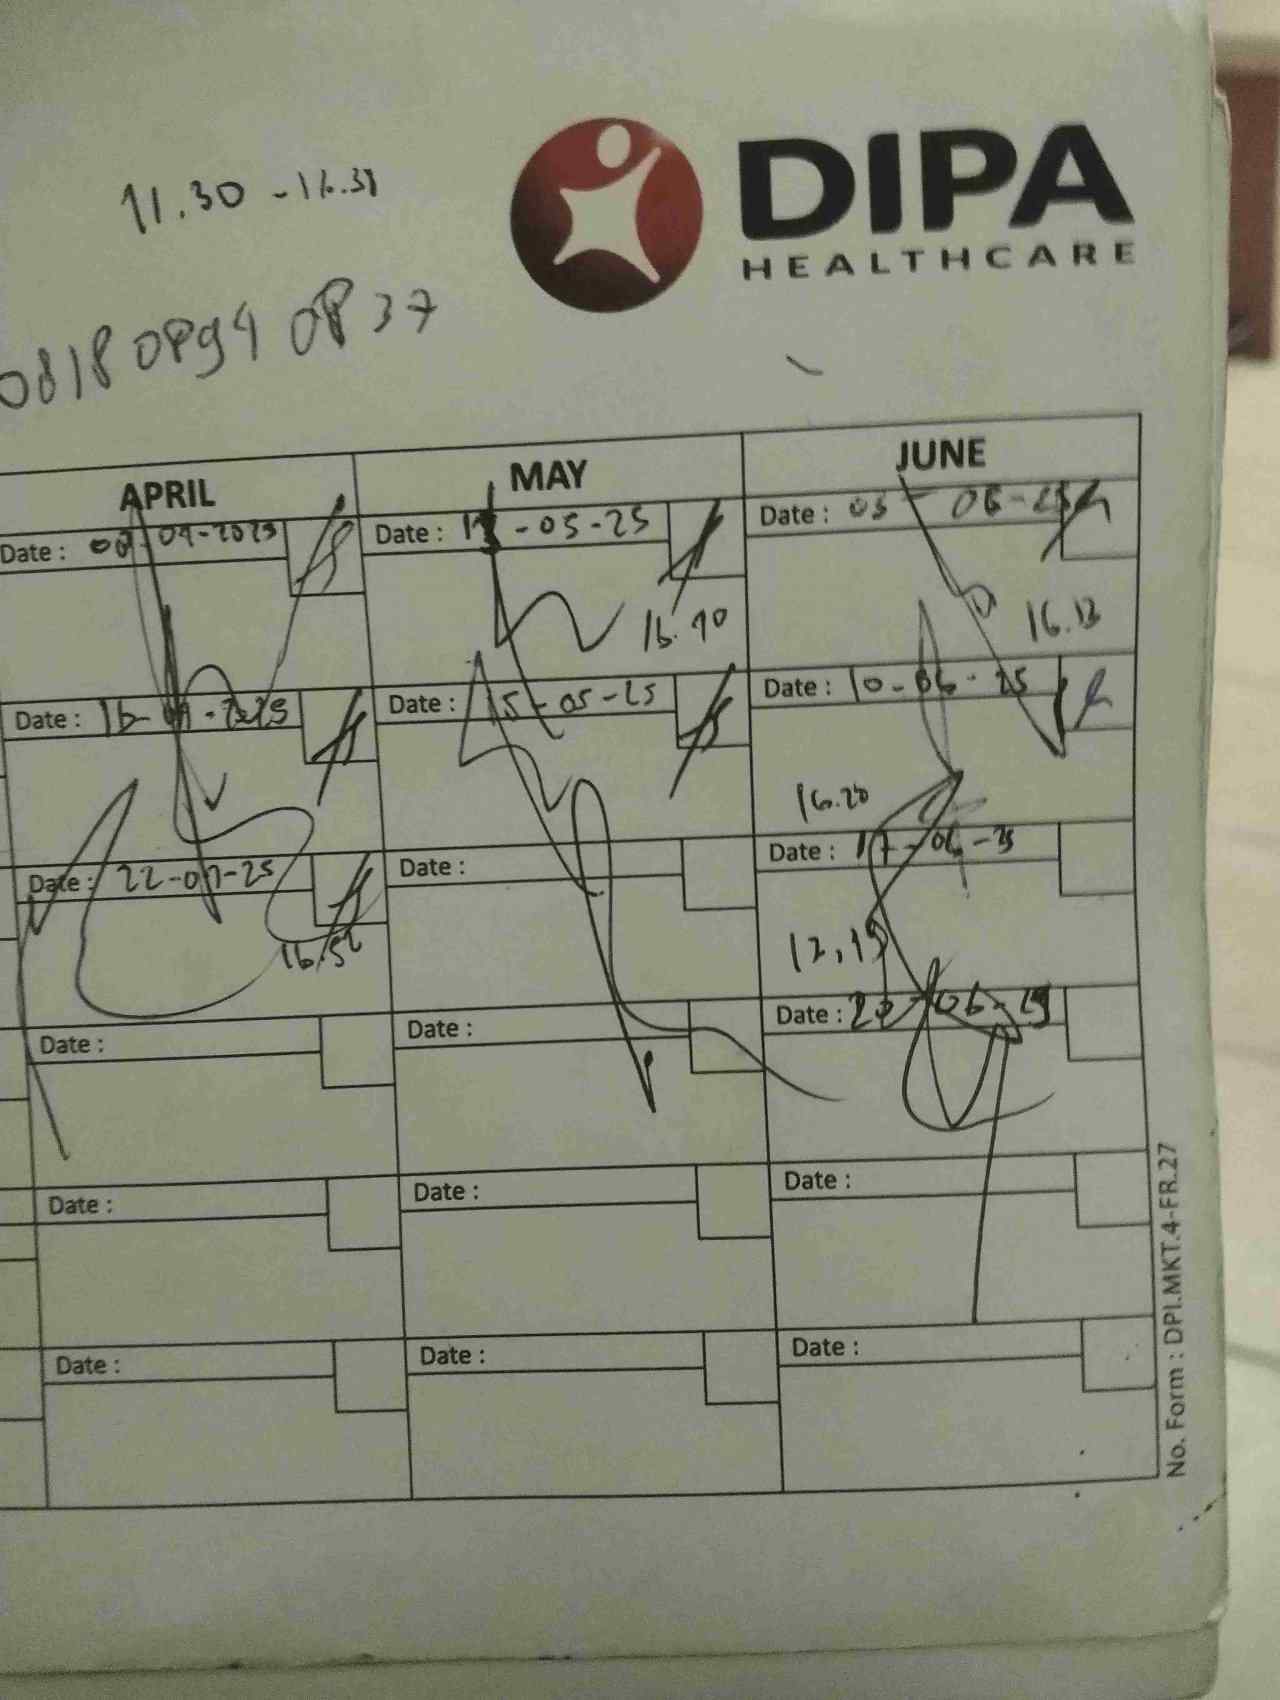 DIPA
HEALTHCARE
11.30 - 16.31
0818 0894 0837
APRIL MAY JUNE
Date : 09-04-2025 Date : -05-25 Date : 03 - 06-25
16.40 16.13
Date : 16-04-2025 Date : 15-05-25 Date : 10-06-25
16.20
Date : 22-04-25 Date : Date : 17-06-25
16.52 12,15
Date : Date : Date : 06-25
Date : Date : Date :
Date : Date : Date :
No. Form : DPI.MKT.4-FR.27